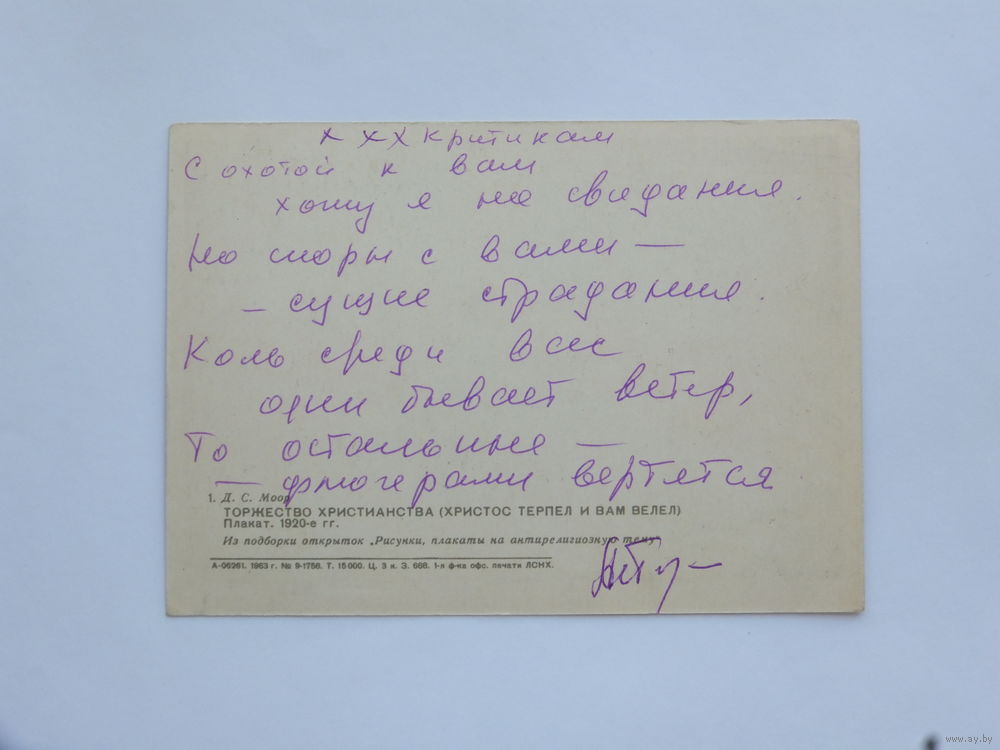 ХХХ критикам
С охотой к вам
хожу я на свидания.
Но споры с вами —
— сущие страдания.
Коль среди вас
один бывает ветер,
То остальные —
— флюгерами вертятся
1. Д. С. Моор
ТОРЖЕСТВО ХРИСТИАНСТВА (ХРИСТОС ТЕРПЕЛ И ВАМ ВЕЛЕЛ)
Плакат. 1920-е гг.
Из подборки открыток „Рисунки, плакаты на антирелигиозную тему"
А-06261. 1963 г. № 9-1756. Т. 15 000. Ц. 3 к. З. 668. 1-я ф-ка офс. печати ЛСНХ.
www.ay.by